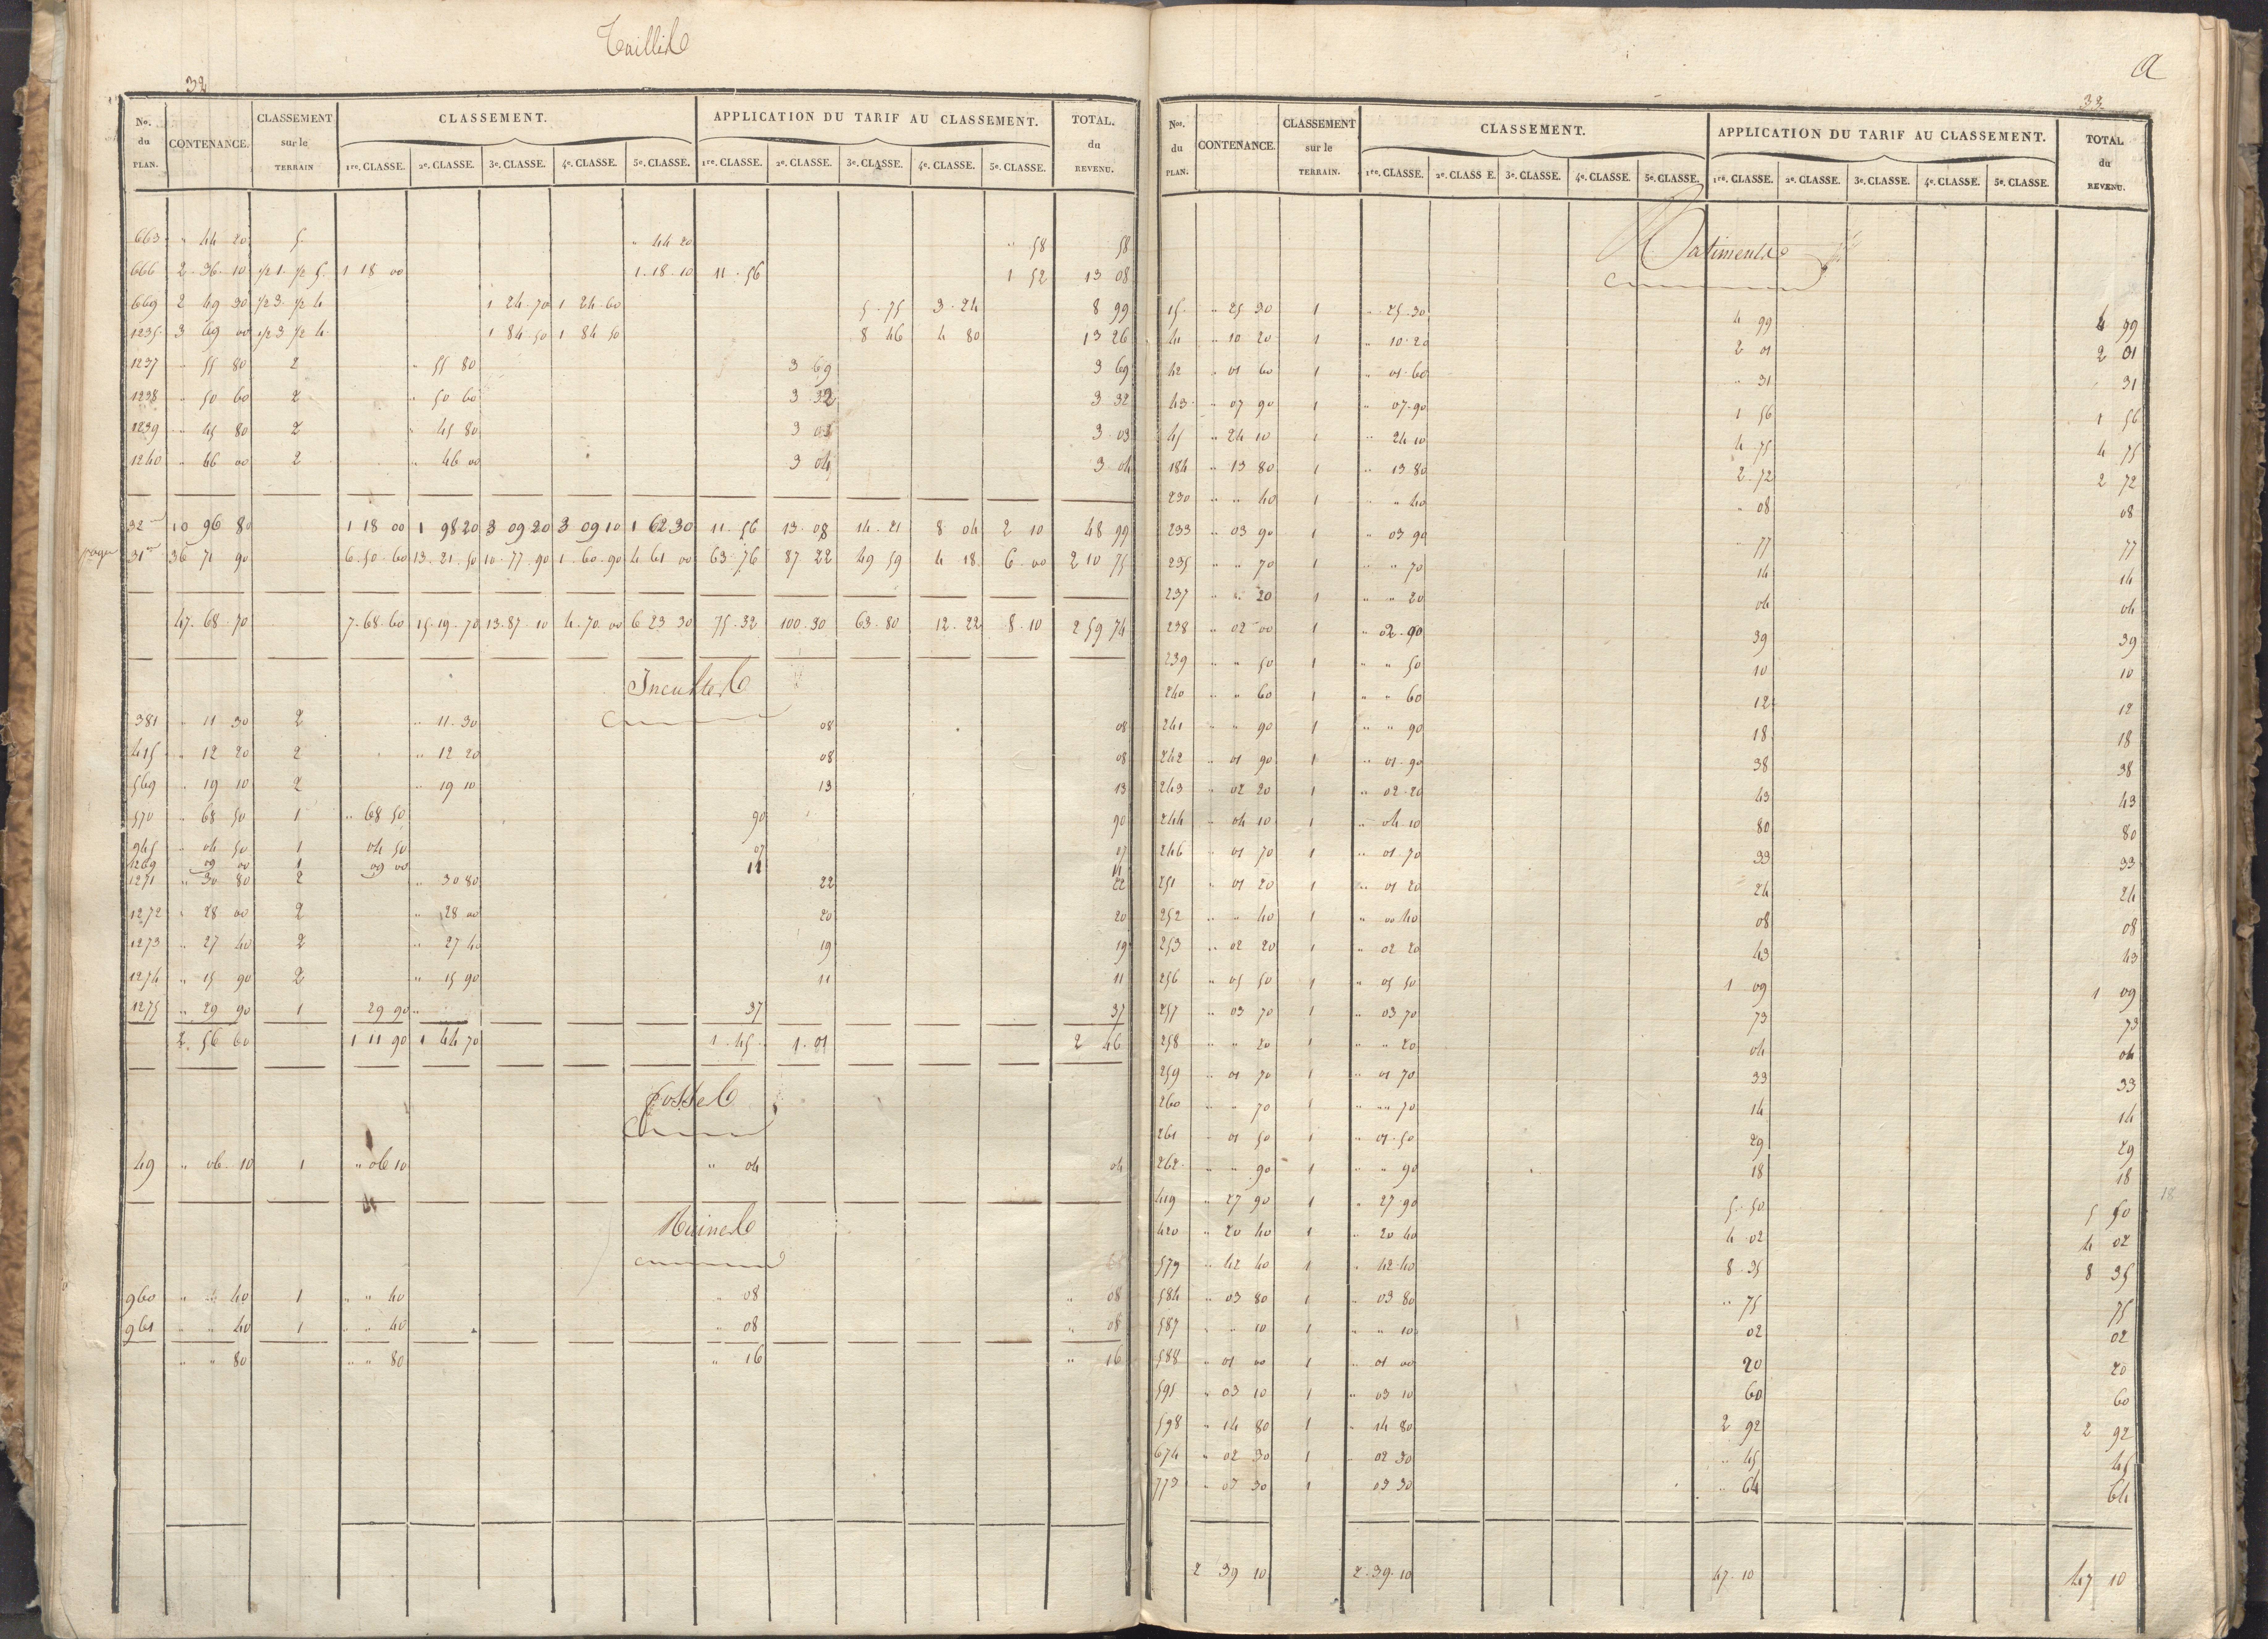 Taillis
32
No. du PLAN. CONTENANCE. CLASSEMENT sur le TERRAIN CLASSEMENT. APPLICATION DU TARIF AU CLASSEMENT. TOTAL. du REVENU.
1re. CLASSE. 2e. CLASSE. 3e. CLASSE. 4e. CLASSE. 5e. CLASSE. 1re. CLASSE. 2e. CLASSE. 3e. CLASSE. 4e. CLASSE. 5e. CLASSE.
663 " 44 20 5 " 44 20 " 58 58
666 2 36 10 1/2 1. 1/2 5. 1 18 00 1 18 10 11 56 1 52 13 08
669 2 49 30 1/2 3. 1/2 4 1 24 70 1 24 60 5 75 3 24 8 99
1235 3 69 00 1/2 3 1/2 4 1 84 50 1 84 50 8 46 4 80 13 26
1237 " 55 80 2 " 55 80 3 69 3 69
1238 " 50 60 2 " 50 60 3 32 3 32
1239 " 45 80 2 " 45 80 3 03 3 03
1240 " 46 00 2 " 46 00 3 04 3 04
32 10 96 80 1 18 00 1 98 20 3 09 20 3 09 10 1 62 30 11 56 13 08 14 21 8 04 2 10 48 99
page 31 36 71 90 6 50 60 13 21 50 10 77 90 1 60 90 4 61 00 63 76 87 22 49 59 4 18 6 00 210 75
47 68 70 7 68 60 15 19 70 13 87 10 4 70 00 6 23 30 75 32 100 30 63 80 12 22 8 10 259 74
Incultes
381 " 11 30 2 " 11 30 08 08
415 " 12 20 2 " 12 20 08 08
569 " 19 10 2 " 19 10 13 13
570 " 68 50 1 " 68 50 90 90
945 " 04 50 1 04 50 07 07
1269 09 00 1 09 00 11 11
1271 " 30 80 2 " 30 80 22 22
1272 " 28 00 2 " 28 00 20 20
1273 " 27 40 2 " 27 40 19 19
1274 " 15 90 2 " 15 90 11 11
1275 " 29 90 1 29 90 " 37 37
2 56 60 1 11 90 1 44 70 1 45 1 01 2 46
Fosse
49 " 06 10 1 " 06 10 " 04 04
Ruines
960 " " 40 1 " " 40 " 08 " 08
961 " " 40 1 " " 40 " 08 " 08
" " 80 " " 80 " 16 " 16
a
33
Nos. du PLAN. CONTENANCE. CLASSEMENT sur le TERRAIN. CLASSEMENT. APPLICATION DU TARIF AU CLASSEMENT. TOTAL du REVENU.
1re. CLASSE. 2e. CLASS E. 3e. CLASSE. 4e. CLASSE. 5e. CLASSE. 1re. CLASSE. 2e. CLASSE. 3e. CLASSE. 4e. CLASSE. 5e. CLASSE.
Batiments
15 " 25 30 1 " 25 30 4 99 4 99
41 " 10 20 1 " 10 20 2 01 2 01
42 " 01 60 1 " 01 60 " 31 31
43 " 07 90 1 " 07 90 1 56 1 56
45 " 24 10 1 " 24 10 4 75 4 75
184 " 13 80 1 " 13 80 2 72 2 72
230 " " 40 1 " " 40 " 08 08
233 " 03 90 1 " 03 90 " 77 77
235 " " 70 1 " " 70 14 14
237 " " 20 1 " " 20 04 04
238 " 02 00 1 " 02 00 39 39
239 " " 50 1 " " 50 10 10
240 " " 60 1 " " 60 12 12
241 " " 90 1 " " 90 18 18
242 " 01 90 1 " 01 90 38 38
243 " 02 20 1 " 02 20 43 43
244 " 04 10 1 " 04 10 80 80
246 " 01 70 1 " 01 70 33 33
251 " 01 20 1 " 01 20 24 24
252 " " 40 1 " 00 40 08 08
253 " 02 20 1 " 02 20 43 43
256 " 05 50 1 " 05 50 1 09 1 09
257 " 03 70 1 " 03 70 73 73
258 " " 20 1 " " 20 04 04
259 " 01 70 1 " 01 70 33 33
260 " " 70 1 " " 70 14 14
261 " 01 50 1 " 01 50 29 29
262 " " 90 1 " " 90 18 18
419 " 27 90 1 " 27 90 5 50 5 50
420 " 20 40 1 " 20 40 4 02 4 02
579 " 42 40 1 " 42 40 8 35 8 35
584 " 03 80 1 " 03 80 " 75 75
587 " " 10 1 " " 10 02 02
588 " 01 00 1 " 01 00 20 20
595 " 03 10 1 " 03 10 60 60
598 " 14 80 1 " 14 80 2 92 2 92
674 " 02 30 1 02 30 " 45 45
773 " 03 30 1 03 30 " 64 64
2 39 10 2 39 10 47 10 47 10